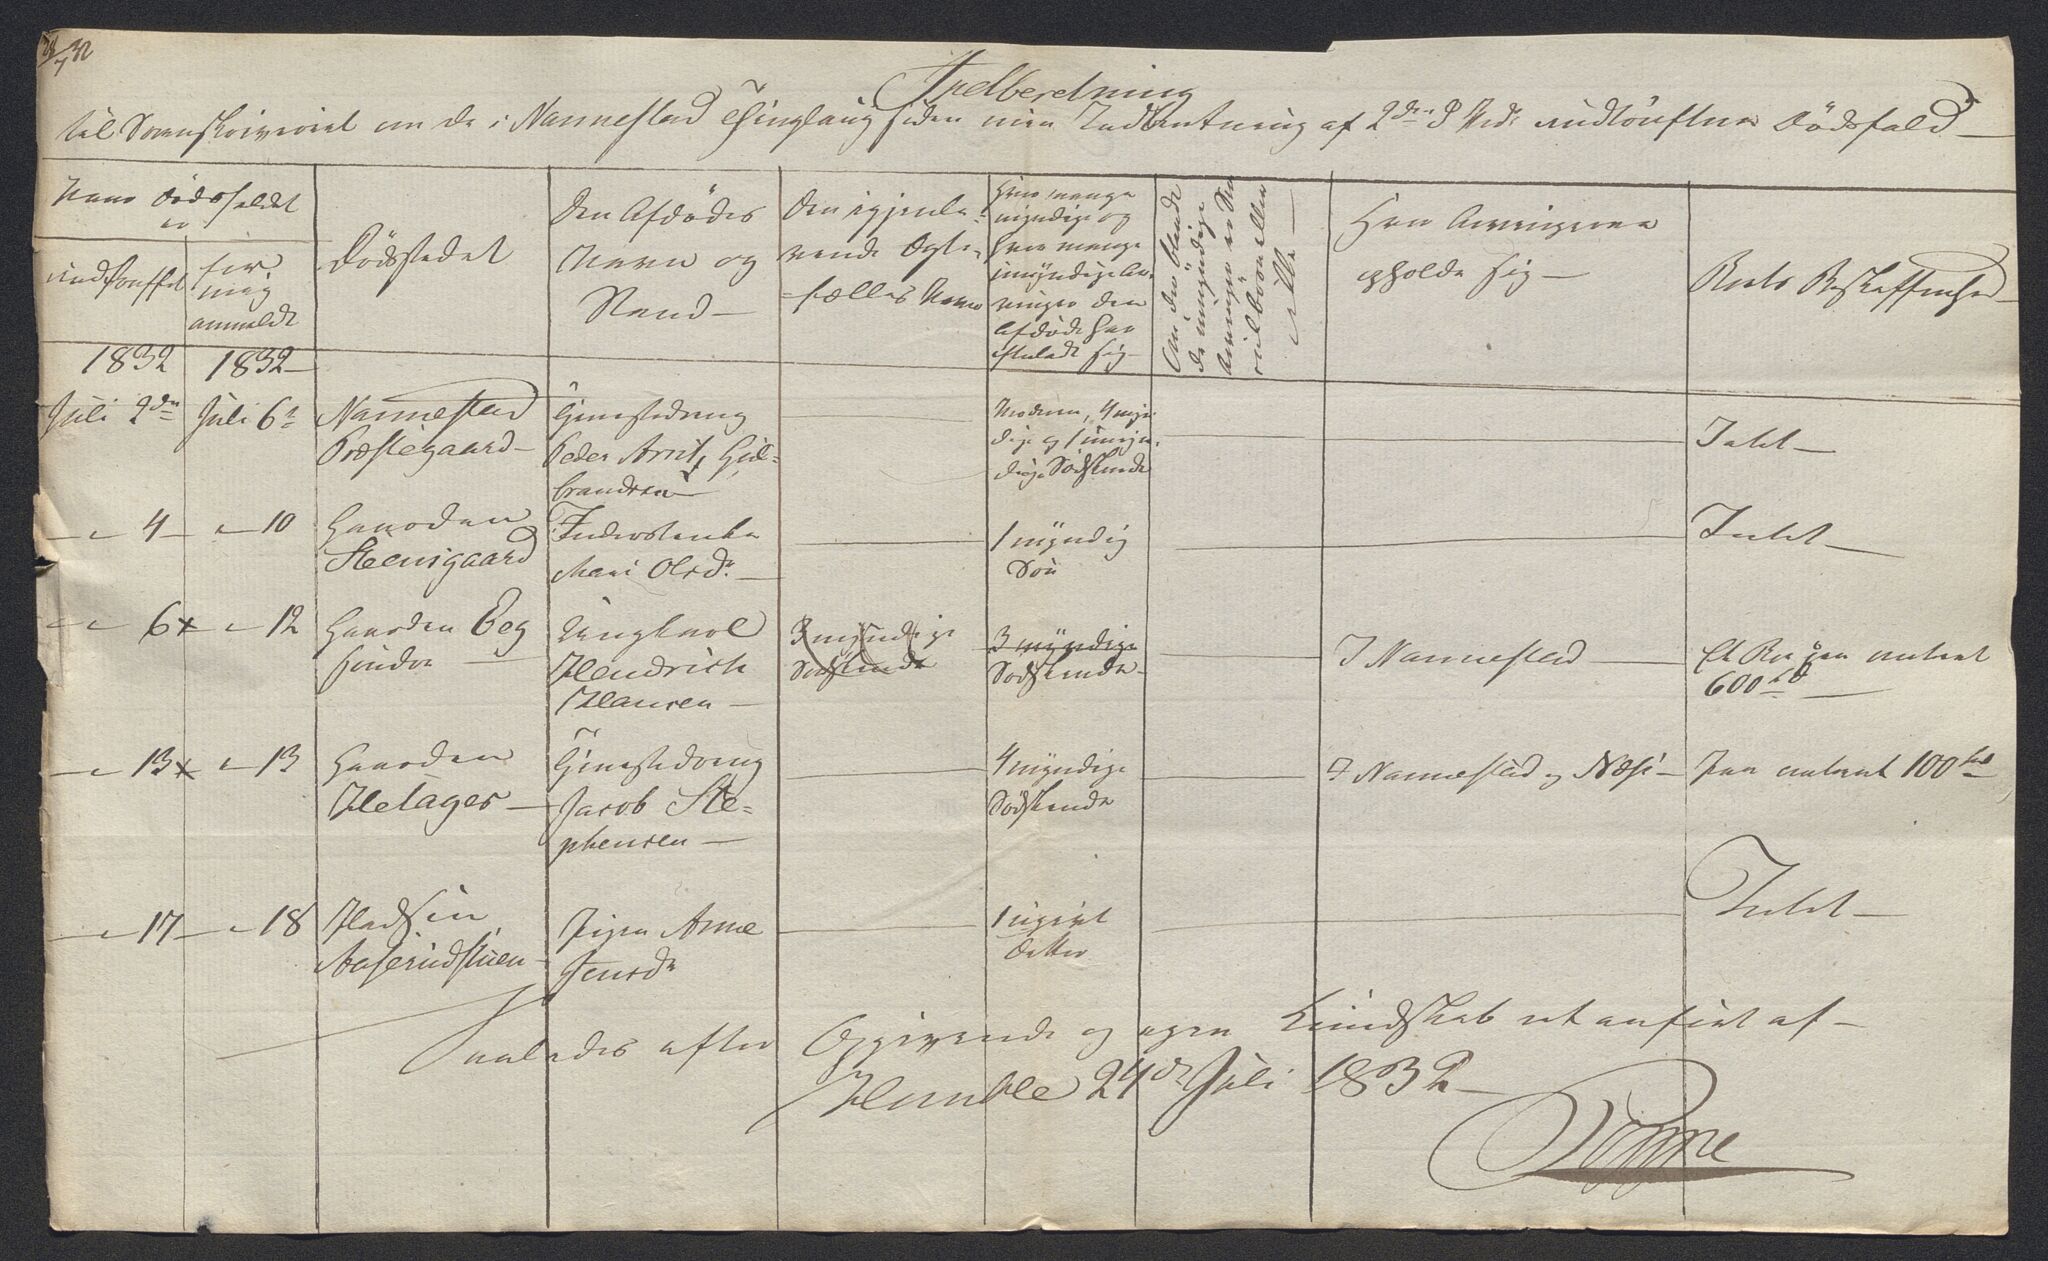 28/7 32
Indberetning
til Sorenskriveriet om de i Nannestad Thinglaug siden min Indberetning af 2den d Md: indtrufne Dødsfald
Naar Dødsfaldet
er
indtruffet
for
mig
anmeldt
Dødsstedet
Den Afdødes
Navn og
Stand
Den igjenle-
vende Ægte-
fælles Navn
Hvor mange
myndige og
hvor mange
umyndige Ar-
vinger den
Afdøde har
efterladt sig
Om der blandt
de umyndige
Arvinger er
ikke
Hvor Arvingerne
opholde sig
Boets Beskaffenhed
1832 1832
Juli 2den Juli 6te Nannestad
Præstegaard
Gaardens
Tjenestedreng
Peder Arnt Gul-
brandsen
Moderen, 4 myn-
dige og 1 umyn-
dige Sødskende
Intet
" 4 " 10 Gaarden
Steensgaard
Inderstenke
Mari Olsdr.
1 myndig
Søn
Intet
" 6 x " 12 Gaarden Beg
søndre
Ungkarl
Hendrich
Hansen
3 myndige
Sødskende
3 myndige
Sødskende
I Nannestad
Et Bo paa omtrent
600 
" 13 x " 13 Gaarden
Helager
Tjenestedreng
Jacob Ste-
phensen
4 myndige
Sødskende
I Nannestad og Næs
Paa omtrent 100
" 17 " 18 Pladsen
Aaserudstuen
Pigen Anne
Jensdr
1 ugivt
Datter
Intet
Saaledes efter Opgivende og egen Kundskab rt anført af
Humble 24de Juli 1832